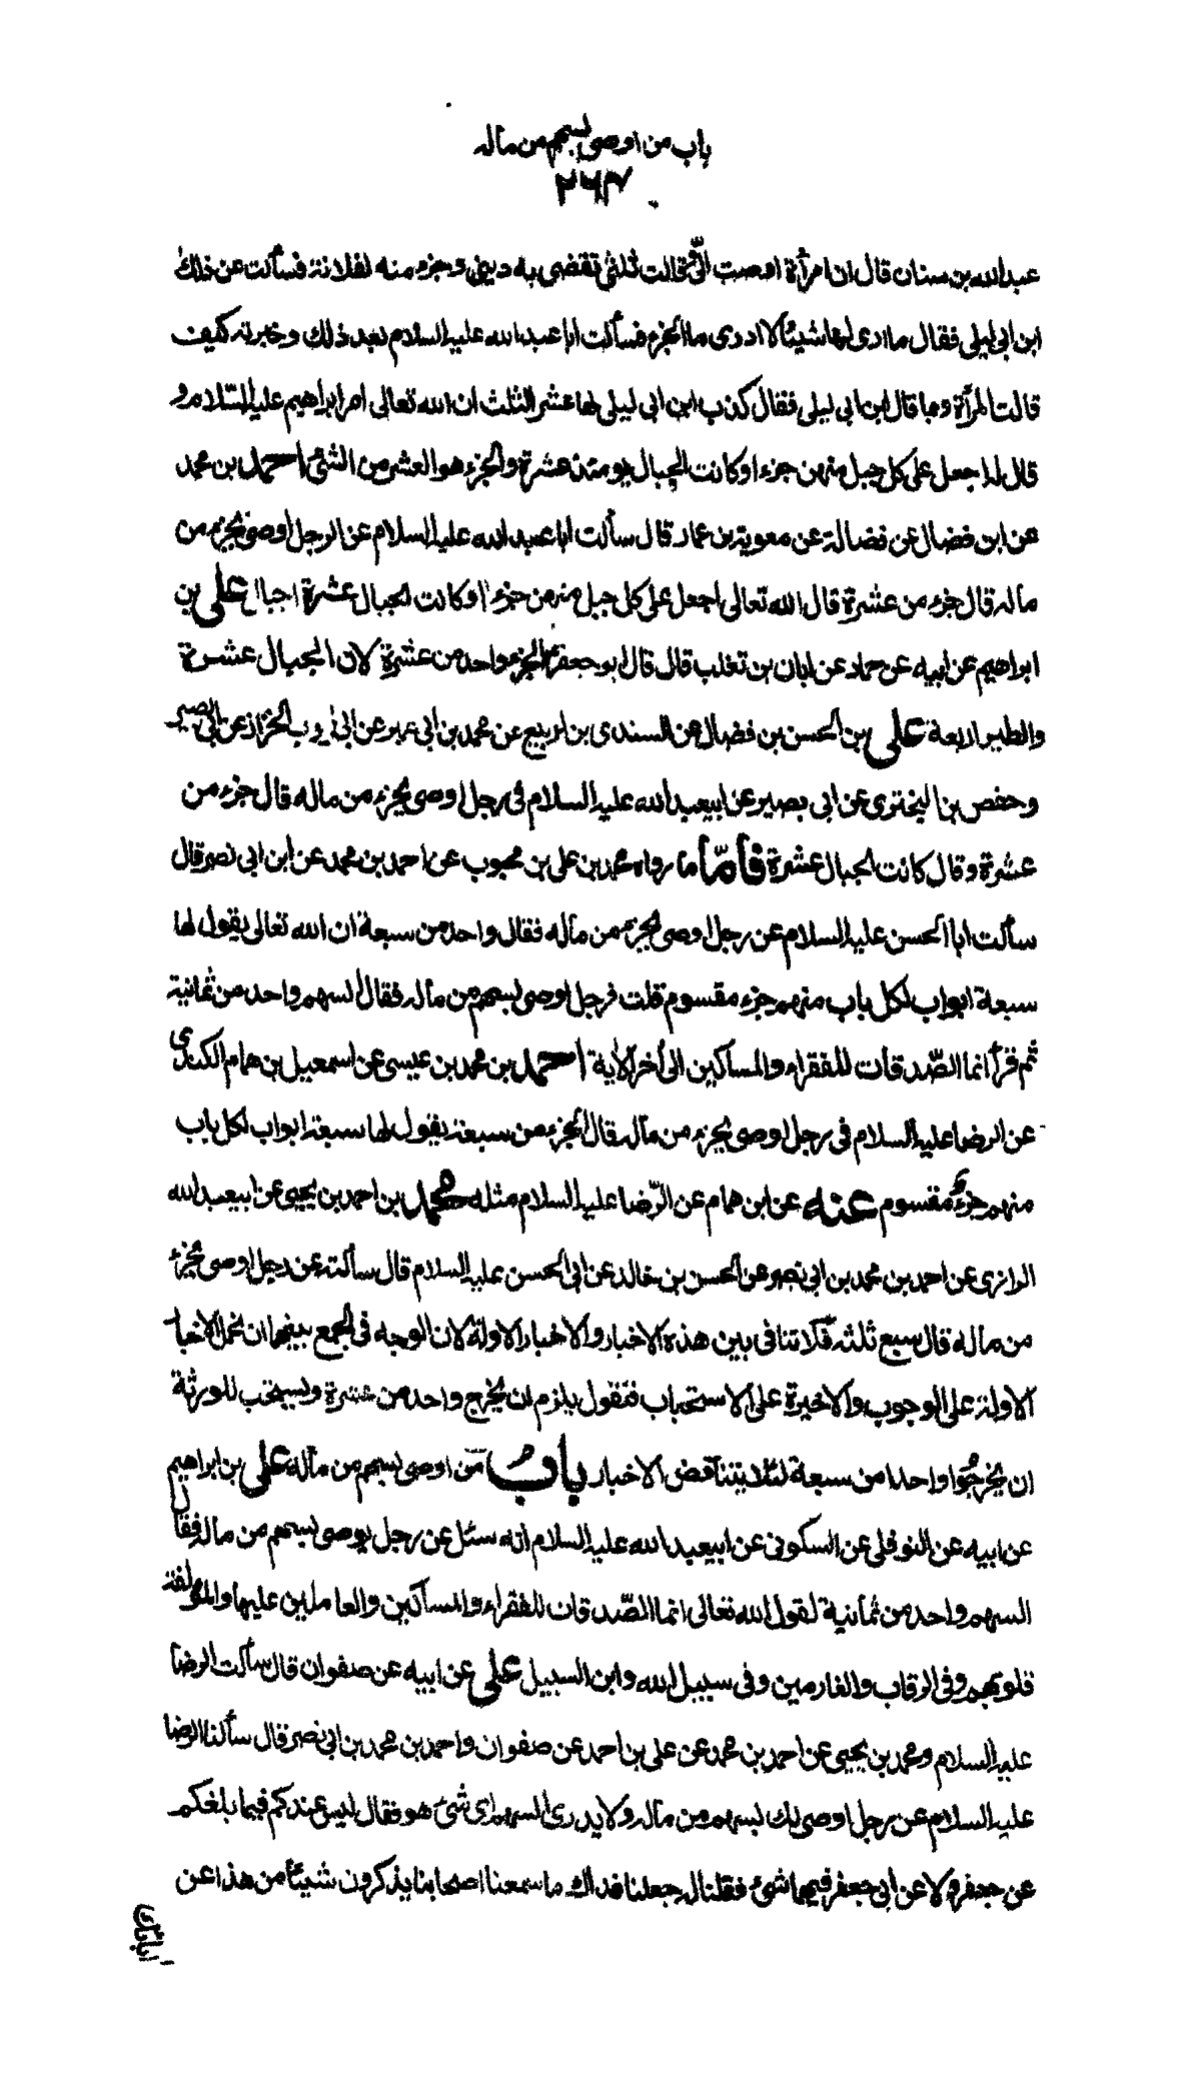 باب من اوصى بسهم من ماله
٢٦٣
عبدالله بن سنان قال ان امرأة اوصت الىّ وقالت ثلثى تقضى به دينى وجزء منه لفلانة فسألت عن ذلك
ابن ابى ليلى فقال ما ارى لها شيئا لا ادرى ما الجزء فسألت ابا عبدالله عليه السلام بعد ذلك وخبرته كيف
قالت المرأة وما قال ابن ابى ليلى فقال كذب ابن ابى ليلى لها عشر الثلث ان الله تعالى امر ابراهيم عليه السّلام و
قال له اجعل على كل جبل منهن جزءا وكانت الجبال يومئذ عشرة والجزء هو العشر من الشئ احمد بن محمد
عن ابن فضال عن فضالة عن معوية بن عمار قال سألت ابا عبدالله عليه السلام عن الرجل اوصى بجزء من
ماله قال جزء من عشرة قال الله تعالى اجعل على كل جبل منهن جزءا وكانت الجبال عشرة اجبال على بن
ابراهيم عن ابيه عن حماد عن ابان بن تغلب قال قال ابو جعفر ع الجزء واحد من عشرة لان الجبال عشرة
والطير اربعة على بن الحسن بن فضال عن السندى بن الربيع عن محمد بن ابى عمير عن ابى ايوب الخزاز عن ابى بصير
وحفص بن البخترى عن ابى بصير عن ابيعبدالله عليه السلام فى رجل اوصى بجزء من ماله قال جزء من
عشرة وقال كانت الجبال عشرة فامّا ما رواه محمد بن على بن محبوب عن احمد بن محمد عن ابن ابى نصر قال
سألت ابا الحسن عليه السلام عن رجل اوصى بجزء من ماله فقال واحد من سبعة ان الله تعالى يقول لها
سبعة ابواب لكل باب منهم جزء مقسوم قلت فرجل اوصى بسهم من ماله فقال السهم واحد من ثمانية
ثم قرأ انما الصّدقات للفقراء والمساكين الى أخر الاية احمد بن محمد بن عيسى عن اسمعيل بن همام الكندى
عن الرضا عليه السلام فى رجل اوصى بجزء من ماله قال الجزء من سبعة يقول لها سبعة ابواب لكل باب
منهم جزءٌ مقسوم عنه عن ابن همام عن الرّضا عليه السلام مثله محمد بن احمد بن يحيى عن ابيعبدالله
الرازى عن احمد بن محمد بن ابى نصر عن الحسن بن خالد عن ابى الحسن عليه السلام قال سألته عن رجل اوصى بجزء
من ماله قال سبع ثلثه فلا تنافى بين هذه الاخبار والاخبار الاولة لان الوجه فى الجمع بينهما ان نحمل الاخبار
الاولة على الوجوب والاخيرة على الاستحباب فنقول يلزم ان يخرج واحد من عشرة ويستحب للورثة
ان يخرجوا واحدا من سبعة لئلا يتناقض الاخبار باب من اوصى بسهم من ماله على بن ابراهيم
عن ابيه عن النوفلى عن السكونى عن ابيعبدالله عليه السلام انه سئل عن رجل يوصى بسهم من ماله فقال
السهم واحد من ثمانية لقول الله تعالى انما الصّدقات للفقراء والمساكين والعاملين عليها والمؤلفة
قلوبهم وفى الرقاب والغارمين وفى سبيل الله وابن السبيل على عن ابيه عن صفوان قال سألت الرضا
عليه السلام ومحمد بن يحيى عن احمد بن محمد عن على بن احمد عن صفوان واحمد بن محمد بن ابى نصر قال سألنا الرضا
عليه السلام عن رجل اوصى لك بسهم من ماله ولا يدرى السهم اى شئ هو فقال ليس عندكم فيما بلغكم
عن جعفر ولا عن ابى جعفر فيها شئ فقلنا له جعلنا فداك ما سمعنا اصحابنا يذكرون شيئا من هذا عن
آبائك